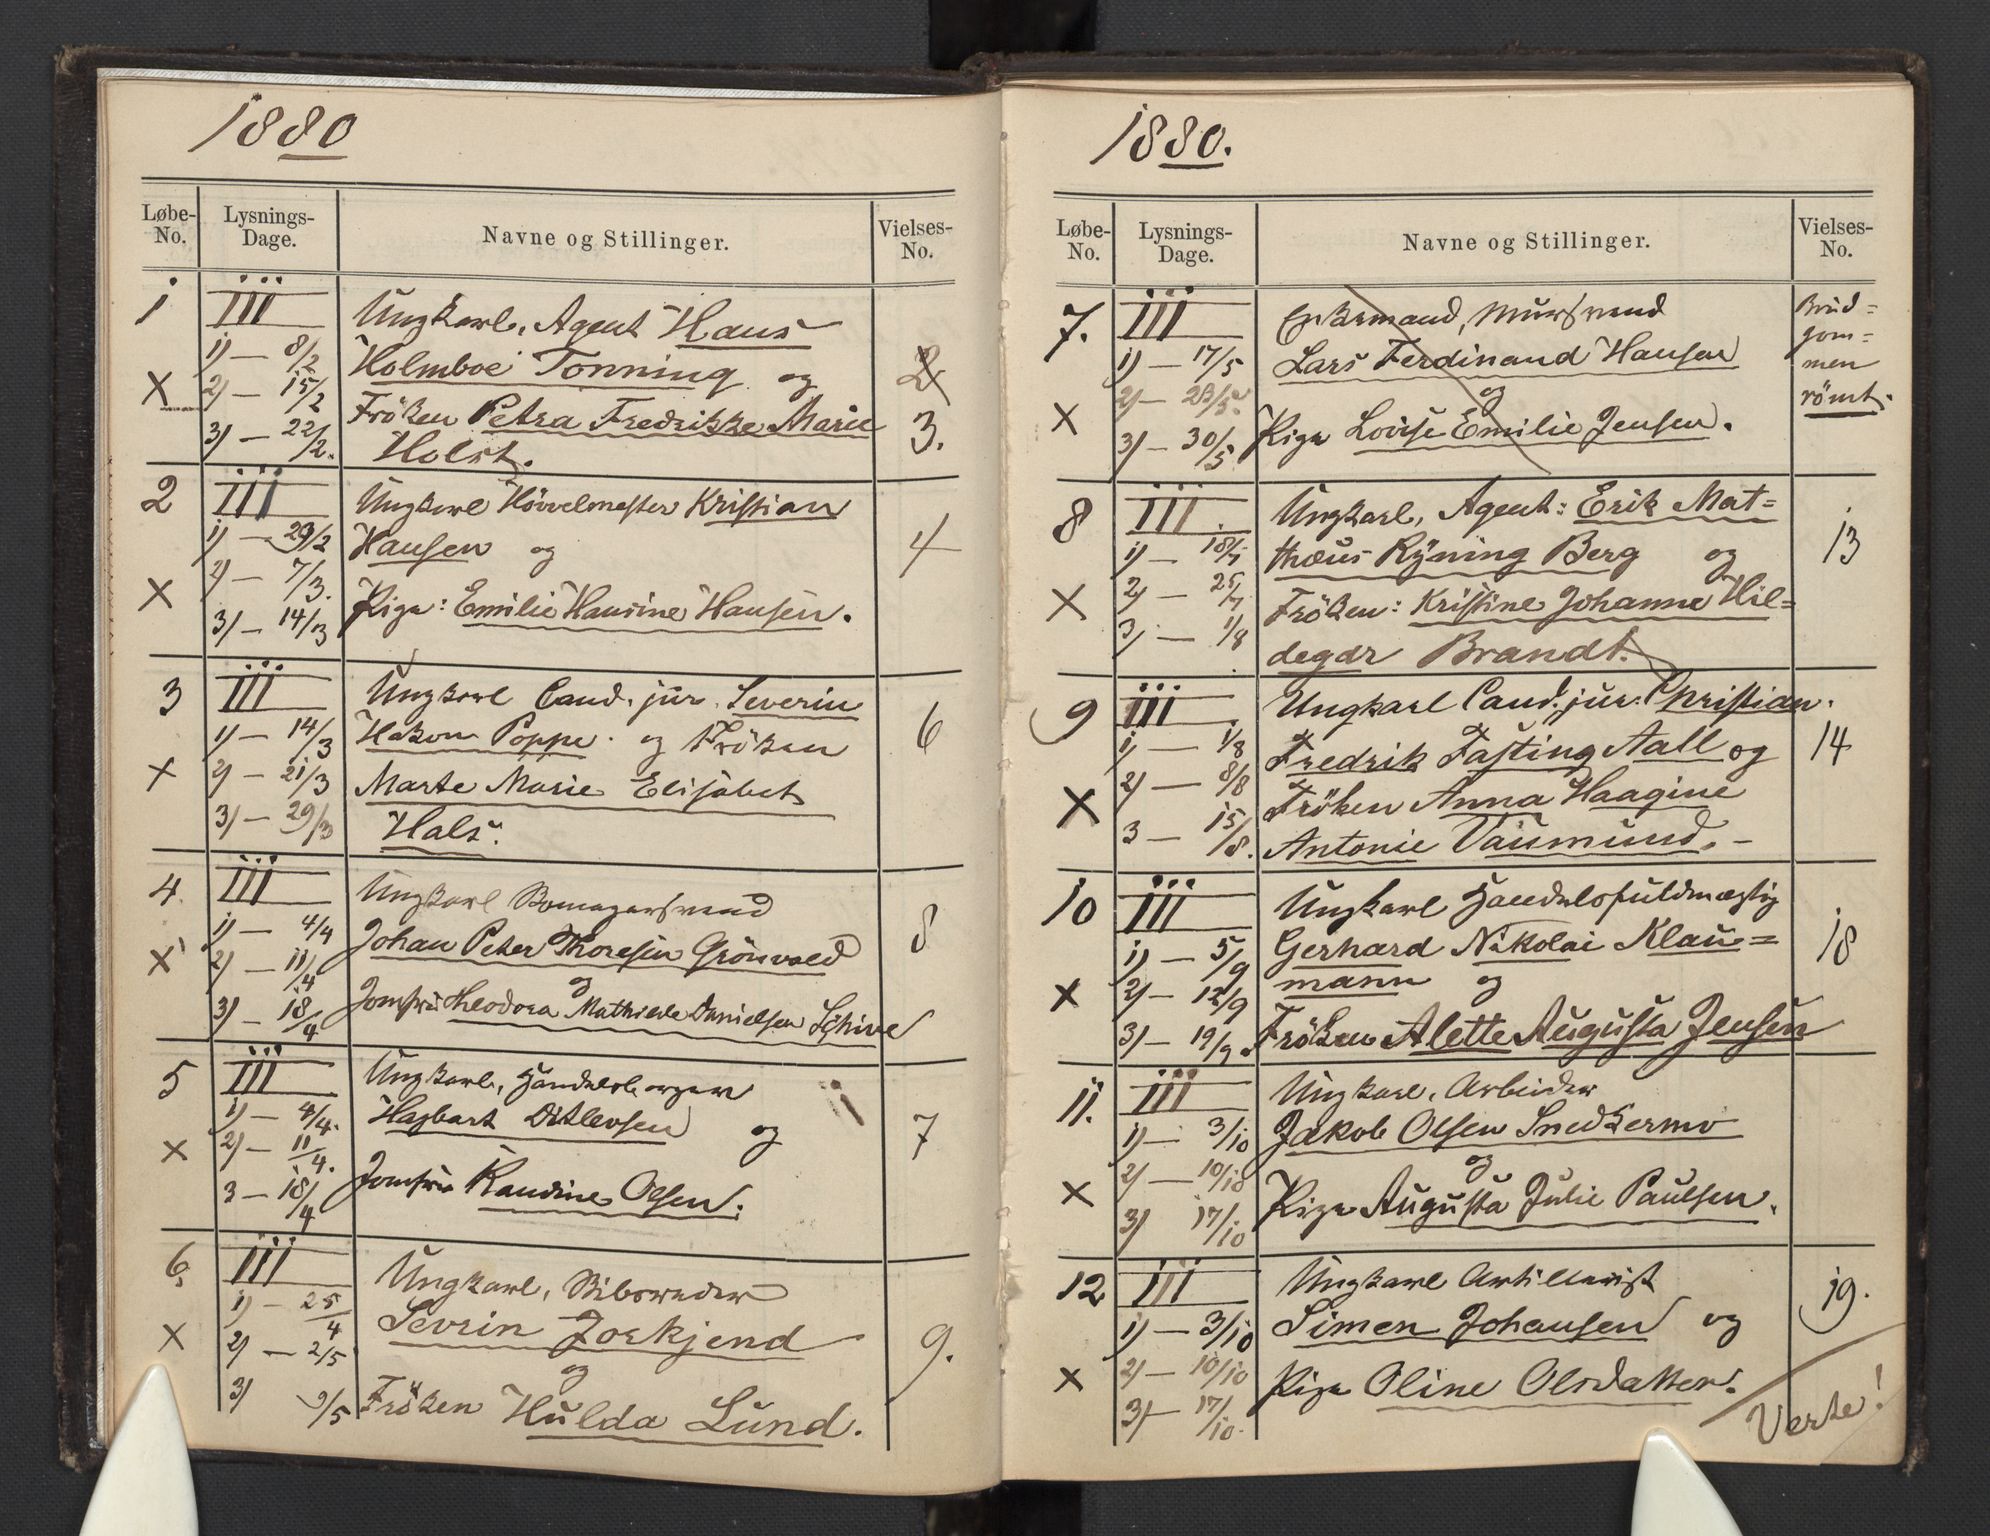 1880
Løbe-No. Lysnings-Dage. Navne og Stillinger. Vielses-No.
1 III Ungkarl, Agent Hans
1) — 8/2 Holmboe Tonning og 2
X 2) — 15/2 Fröken Petra Fredrikke Marie
3) — 22/2. Holst. 3.
2 III Ungkarl Hövvelmester Kristian
1) — 29/2 Hansen og 4
X 2) — 7/3.
3) — 14/3 Pige: Emilie Hansine Hansen.
3 III Ungkarl Cand. jur. Severin
1) — 14/3 Hakon Poppe. og Fröken 6
X 2) — 21/3 Marte Marie Elisabet
3) — 29/3 Hals.
4 III Ungkarl Bomagersvend
1) — 4/4 Johan Peter Thoresen Grönvold 8
X 2) — 11/4 og
3) — 18/4 Jomfru Theodora Mathilde Danielsen Schive
5 III Ungkarl, Handelsborger
1) — 4/4. Hagbart Ditlevsen og 7
X 2) — 11/4.
3 — 18/4 Jomfru Randine Olsen.
6. III Ungkarl,
1) — 25/4 Sevrin Joekjend
X 2) — 2/5 og 9.
3) 9/5 Fröken Hulda Lund.
1880.
Løbe-No. Lysnings-Dage. Navne og Stillinger. Vielses-No.
7. III Enkemand, Mursvend Brud=
1) — 17/5 Lars Ferdinand Hansen gom=
2) — 23/5. og men
X 3) — 30/5 Pige Lovise Emilie Jensen. römt.
8 III Ungkarl, Agent: Erik Mat=
1) — 18/7 thæus Ryning Berg og 13
X 2) — 25/7 Fröken: Kristine Johanne Hil=
3) — 1/8 degar Brandt.
9 III Ungkarl Cand. jur. Christian
1) — 1/8 Fredrik Fasting Aall og 14
X 2) — 8/8 Fröken Anna Haagine
3 — 15/8. Antonie Vaumund. —
10 III Ungkarl Handelsfuldmægtig
1) — 5/9 Gerhard Nikolai Klau= 18
X 2) — 12/9 mann og
3) — 19/9. Fröken Alette Augusta Jensen
11. III Ungkarl, Arbeider
1) — 3/10 Jakob Olsen Snedkermo
2) — 10/10 og
X 3) 17/10 Pige Augusta Julie Paulsen.
12 III Ungkarl Artillerist
1) — 3/10 Simen Johansen og 19.
X 2) — 10/10 Pige Oline Olsdatter.
3) — 17/10.
Verte!